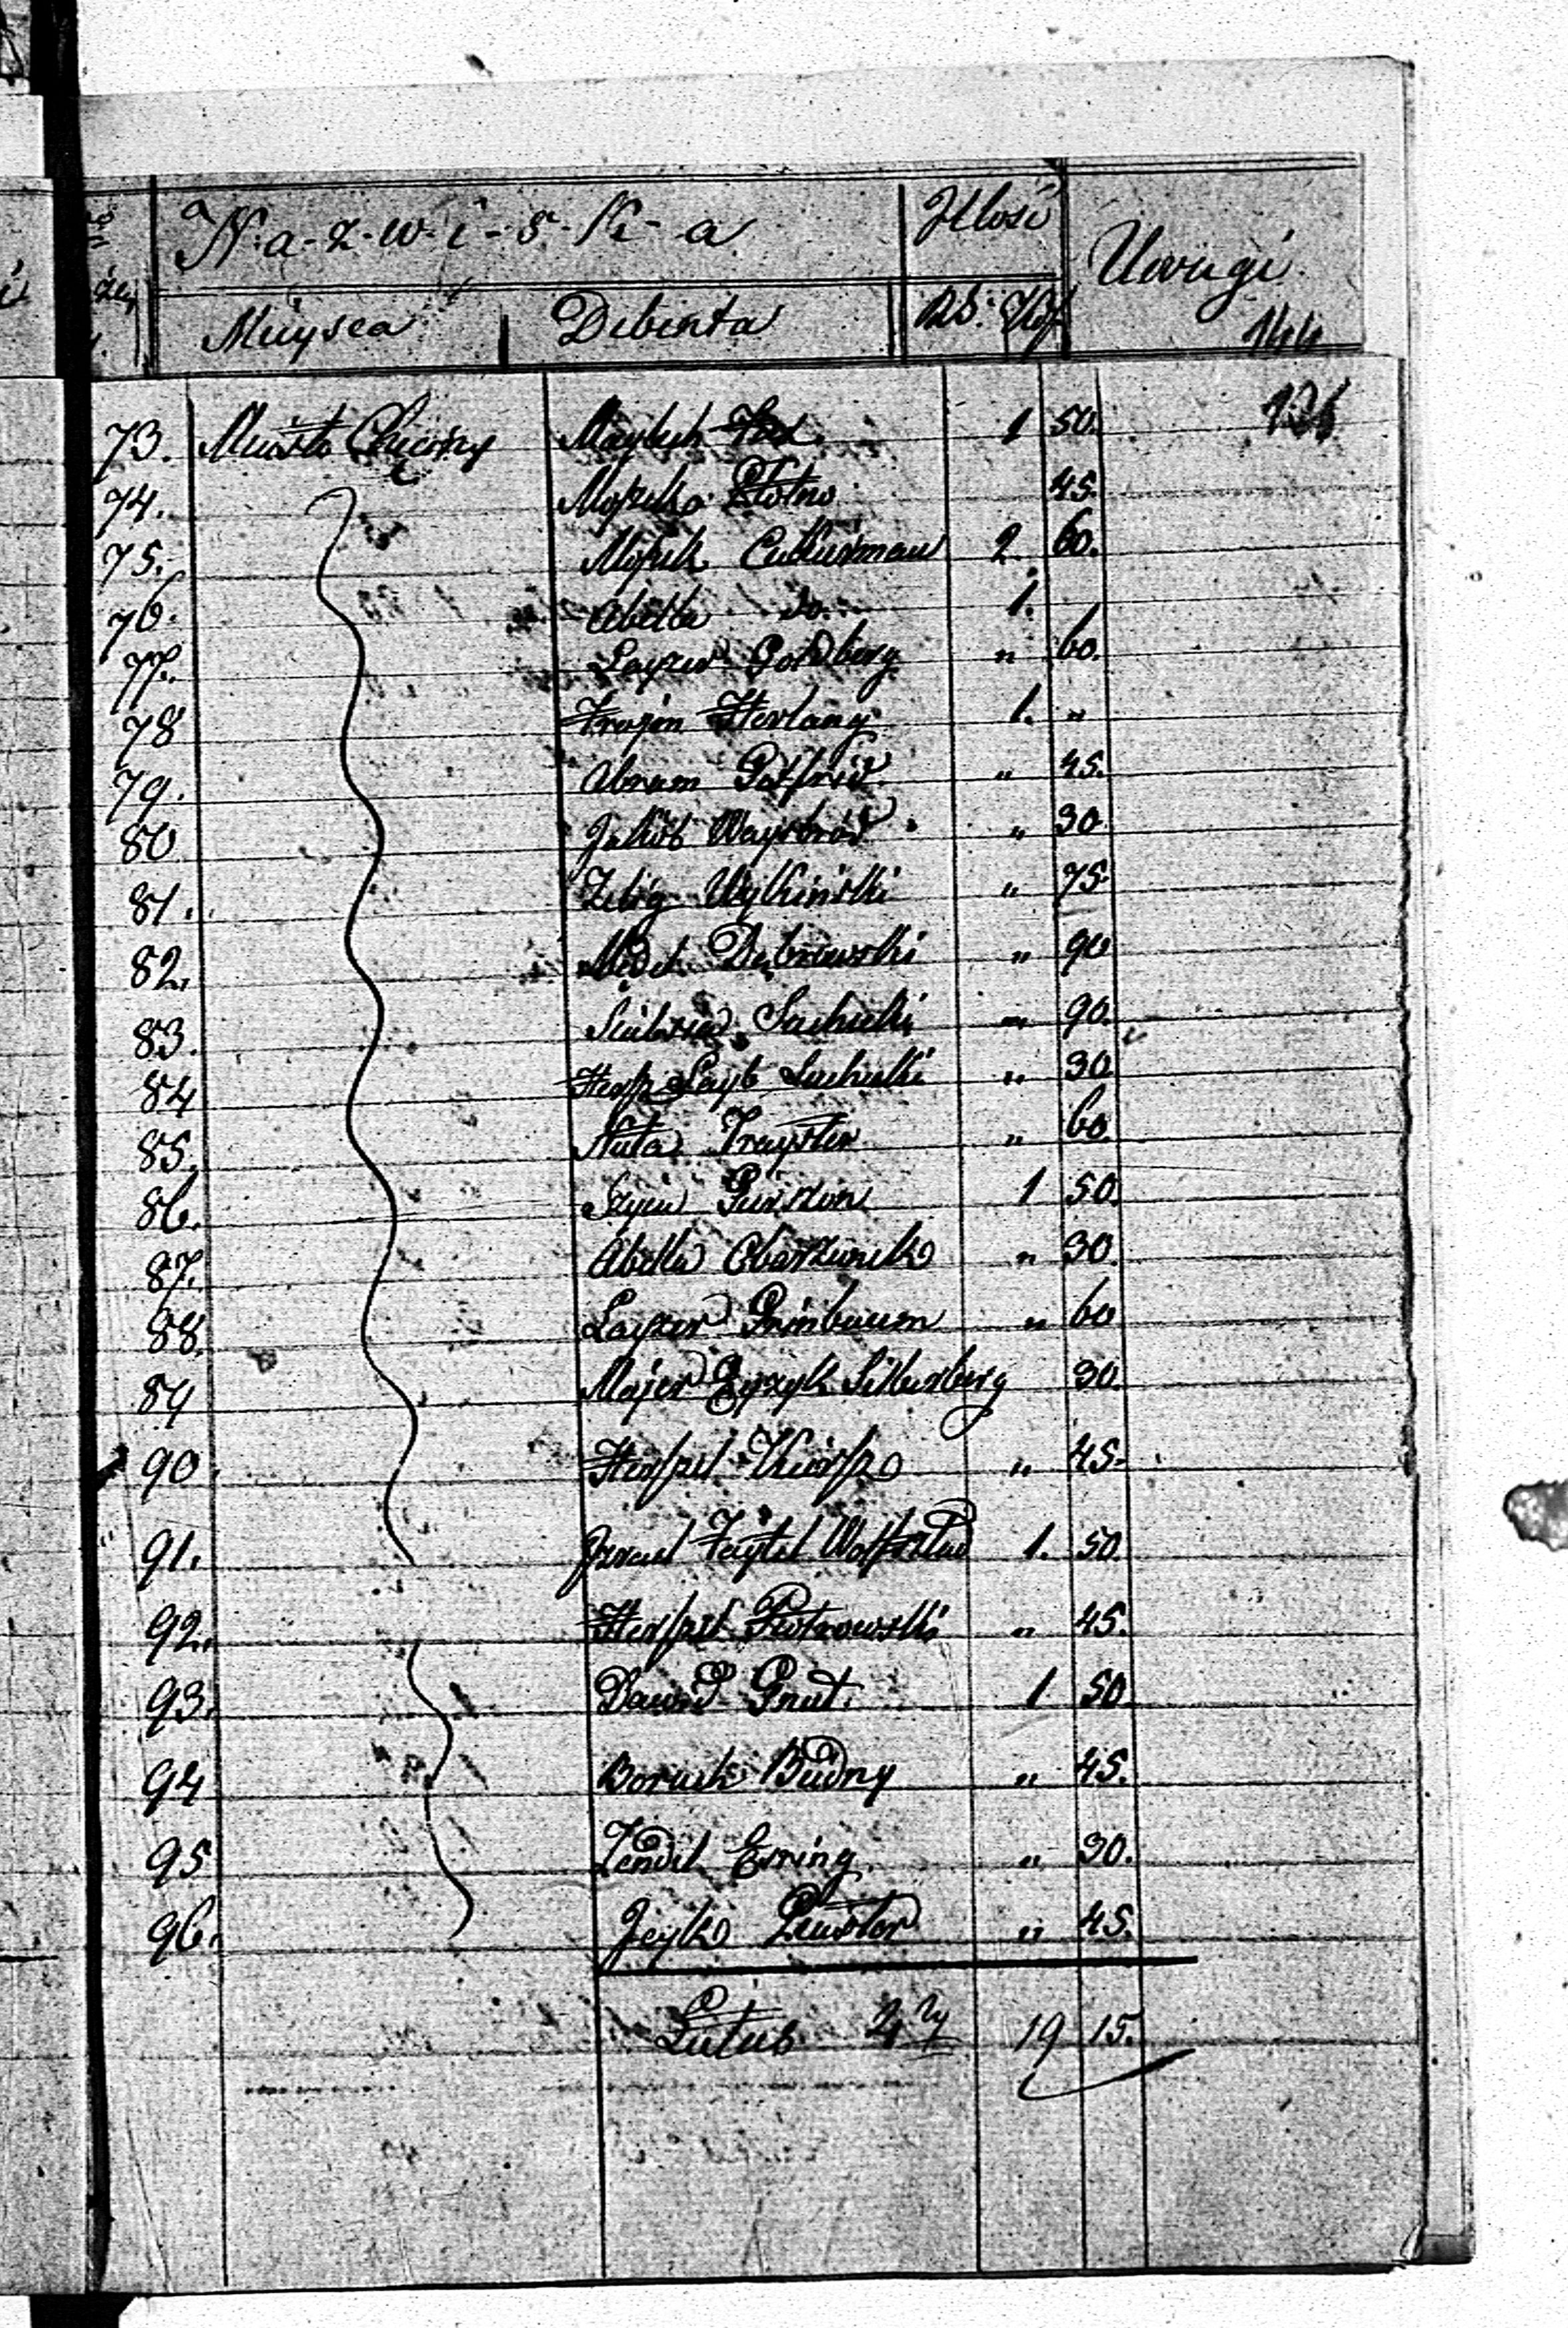 N-a-z-w-i-s-k-a Ilość Uwagi
Mieysca Debenta RS. Kop. 144
73. Miasto Chęciny Maylech 1 50.
74. Moszko Płotno 45.
75. Moszk Cukierman 2 60.
76. Abella do. 1.
77. Layzer Goldberg " 60.
78 Frojm Herlang 1. "
79. Abram Gotfrid " 45.
80 Jakób Waysbrod " 30
81. Zelig Wylkiński " 75.
82. Midel Dąbrowski " 90
83. Suchecki " 90.
84 Herszl Layb Suchecki " 30
85. Nuta Trayster " 60.
86. Szyia Gierszon 1 50.
87. Abella Obarzanek " 30.
88. Layzer Grinbaum " 60
89 Majer Eyzyk Silberberg 30.
90 Herszel Kierszo " 45.
91. Izrael Faytel 1. 50.
92. Herszel Piotrowski " 45.
93. Dawid Gnat. 1 50.
94 Boruch Budny " 45.
95 Zendel Erring " 30.
96. Jeyko " 45.
Latus 4ry 19 15.